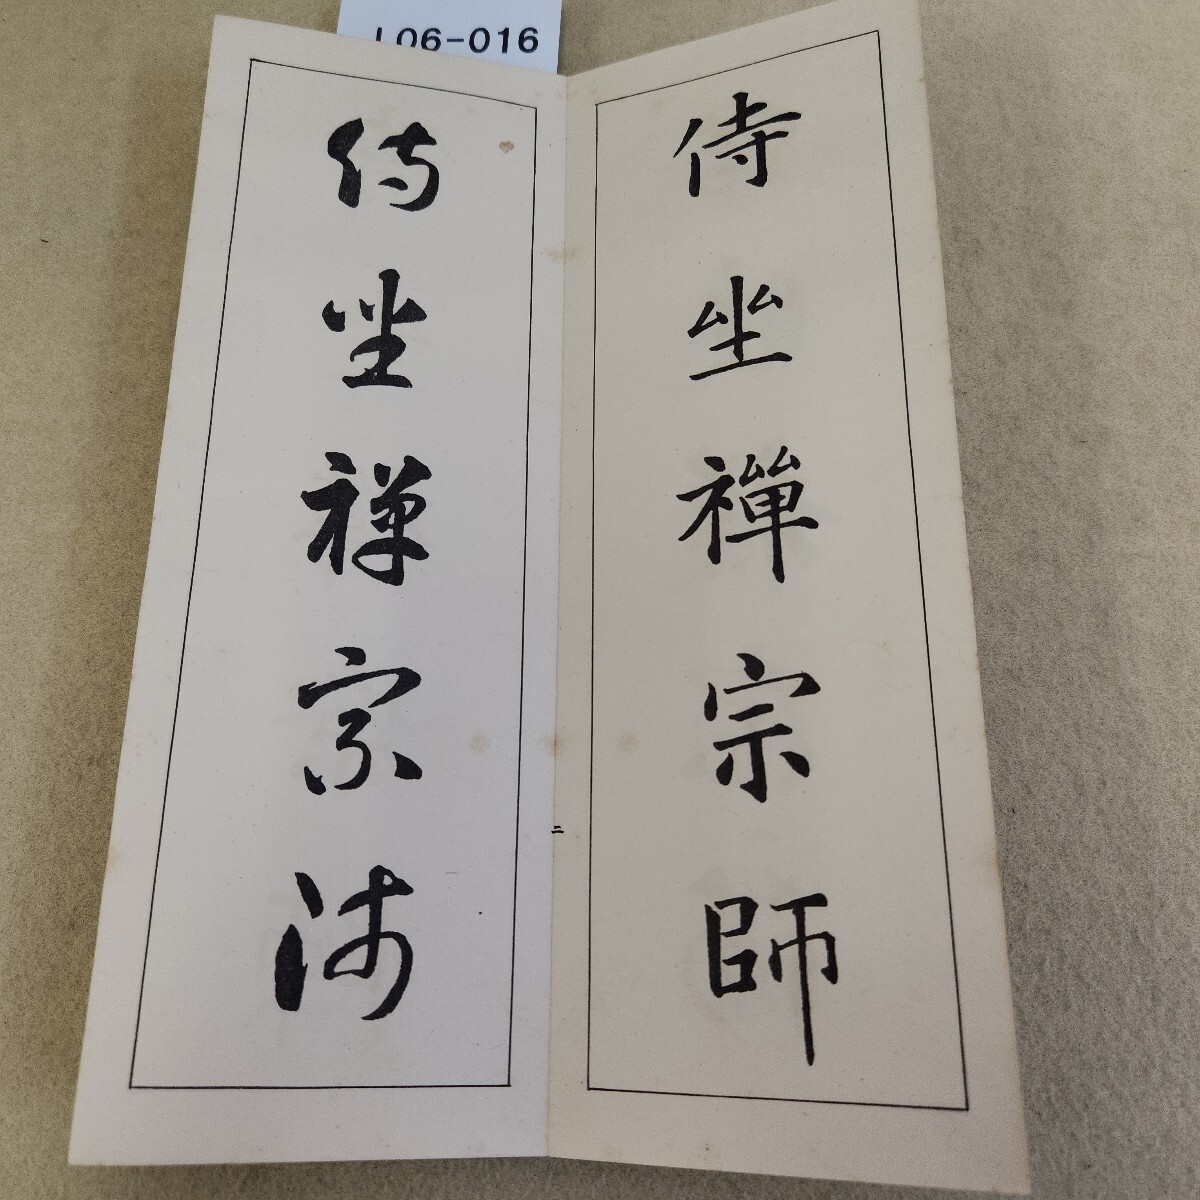 L06-016
侍坐禪宗師
二
侍坐禅宗師